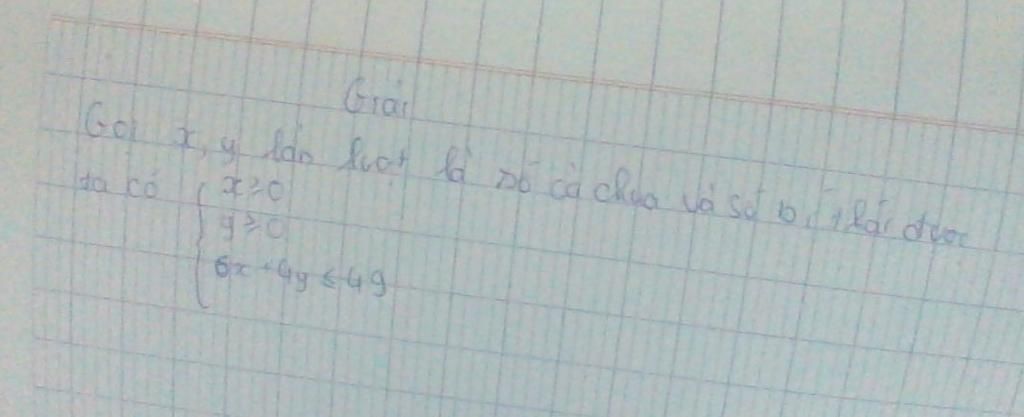 Giải
Gọi x, y lần lượt là số cà chua và số bí thái được
ta có { x ≥ 0
y ≥ 0
6x + 4y ≤ 49